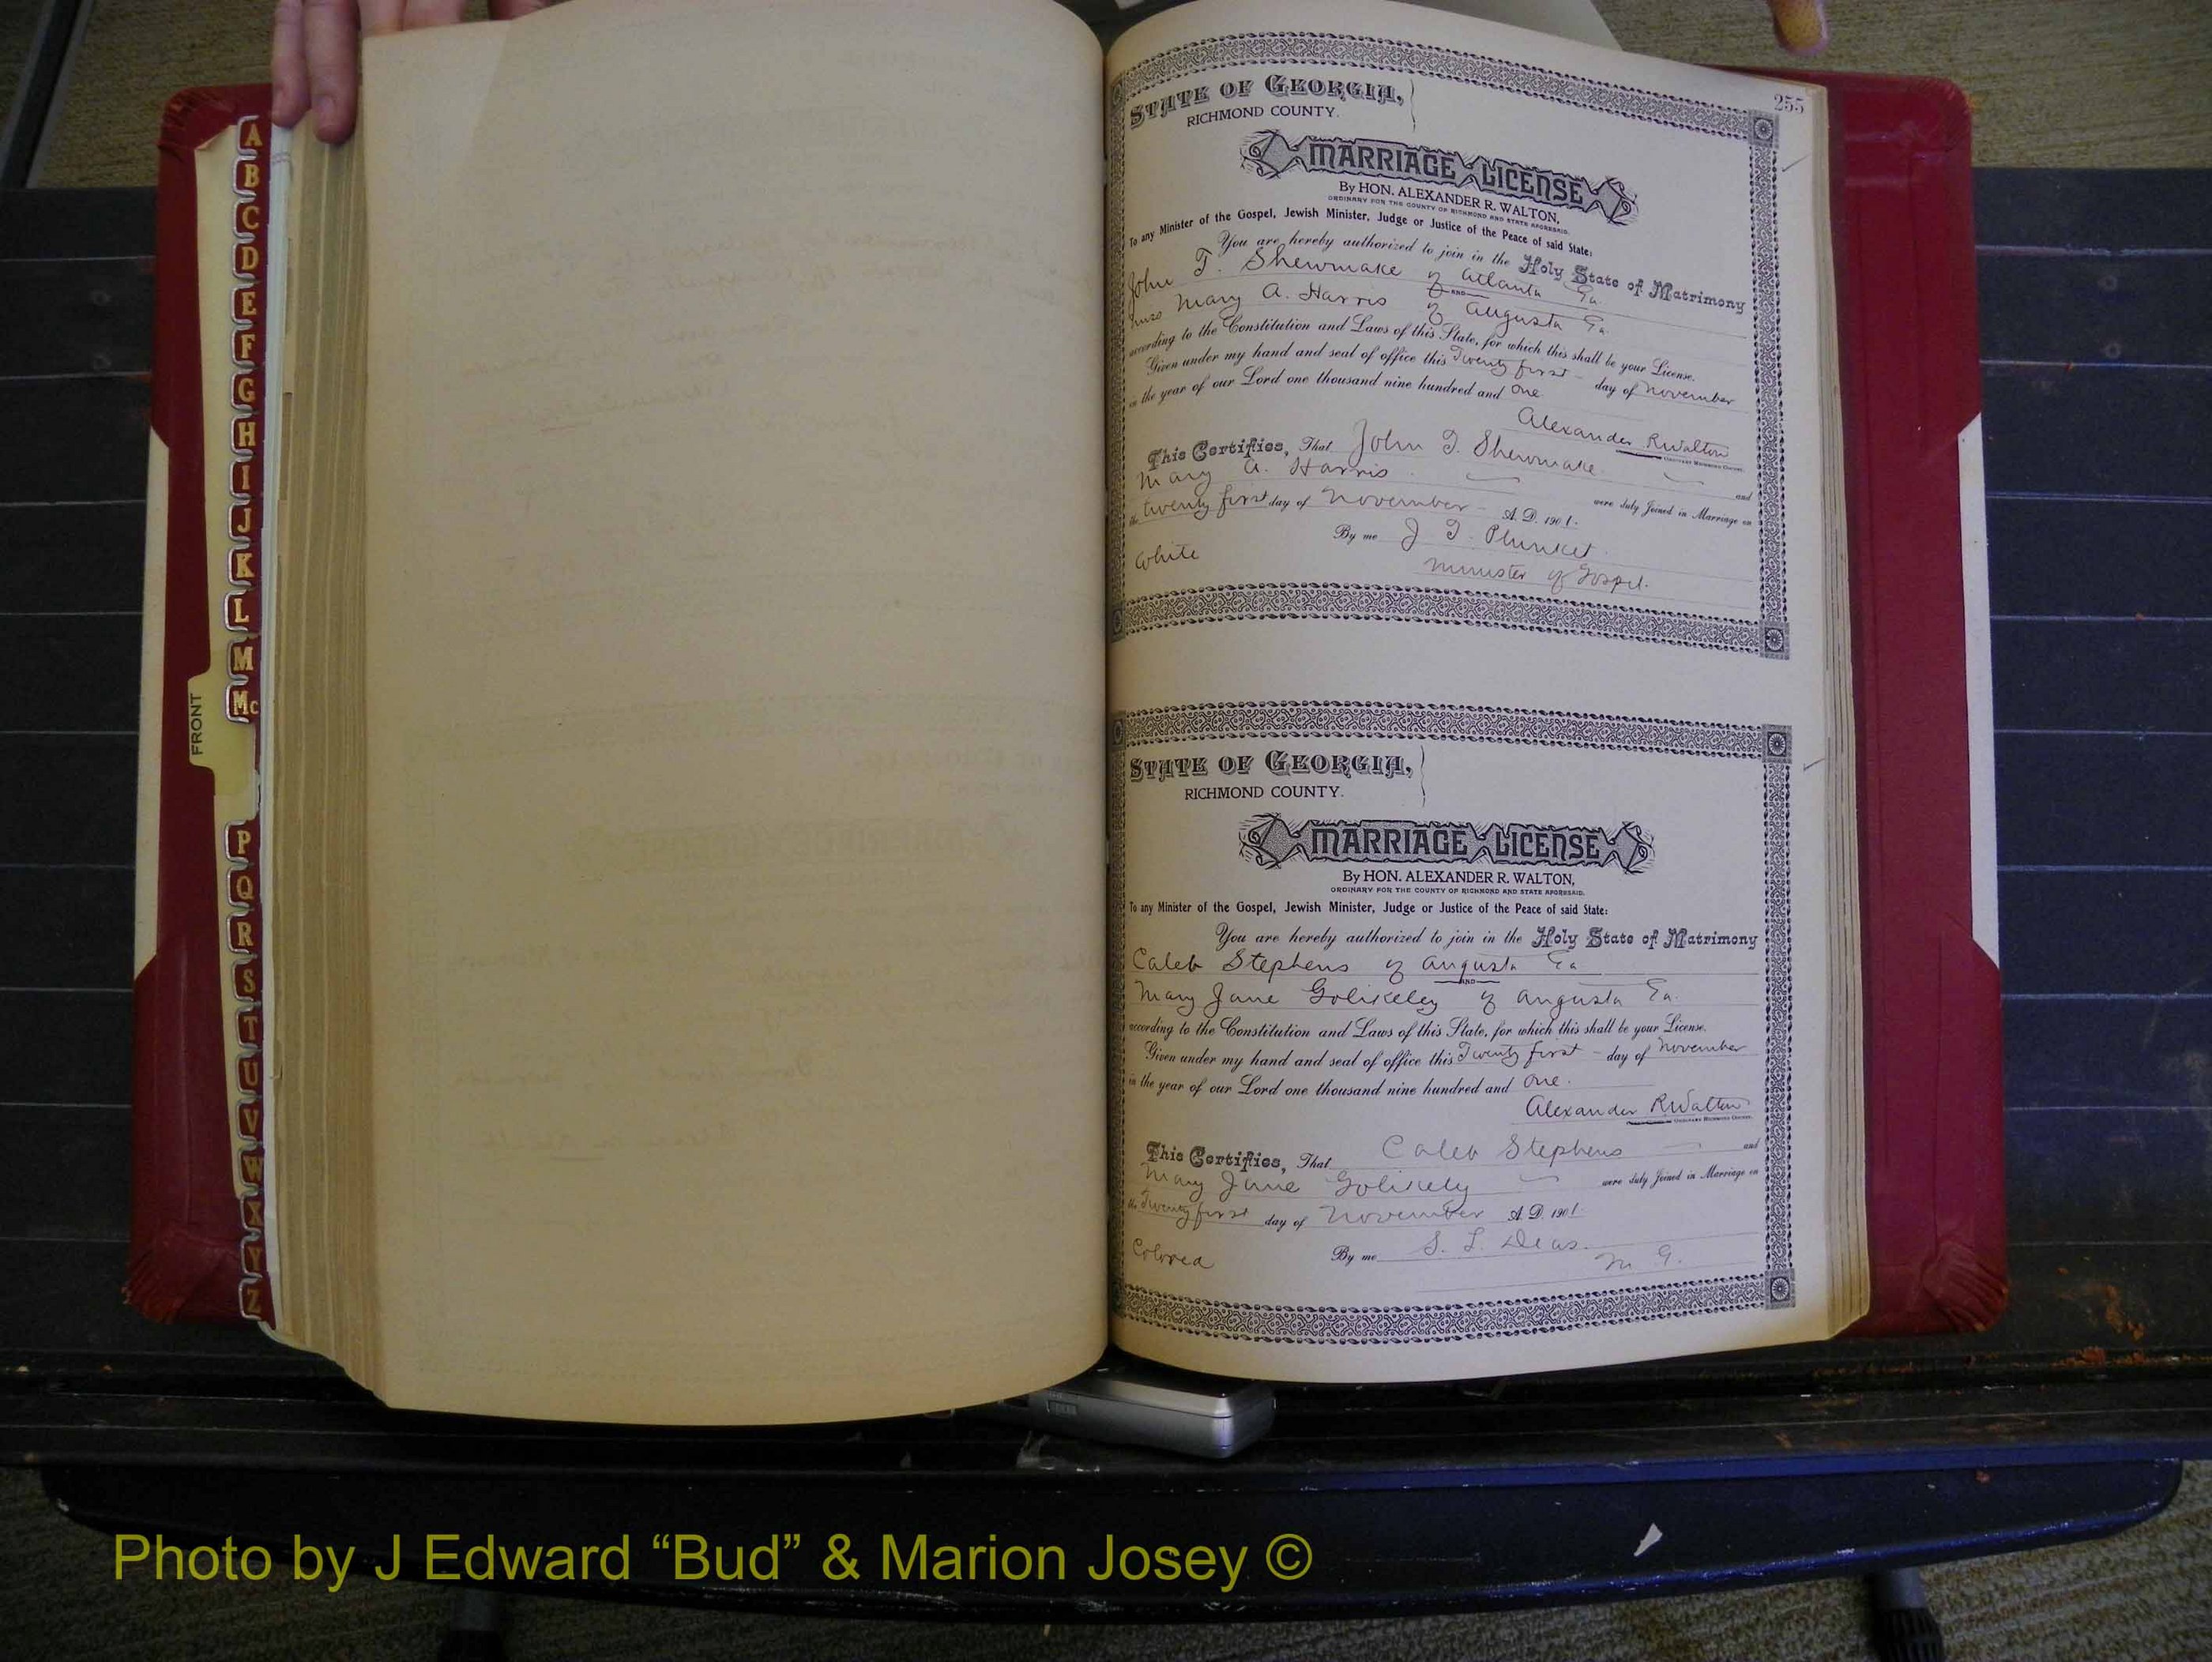 A
B
C
D
E
F
G
H
I
J
K
L
M
Mc
FRONT
P
Q
R
S
T
U
V
W
X
Y
Z
255
STATE OF GEORGIA,
RICHMOND COUNTY.
MARRIAGE LICENSE
By HON. ALEXANDER R. WALTON,
ORDINARY FOR THE COUNTY OF RICHMOND AND STATE AFORESAID.
To any Minister of the Gospel, Jewish Minister, Judge or Justice of the Peace of said State:
You are hereby authorized to join in the Holy State of Matrimony
John T. Shewmake of Atlanta Ga.
AND
Mary A. Harris of Augusta Ga.
according to the Constitution and Laws of this State, for which this shall be your License.
Given under my hand and seal of office this Twenty first day of November
in the year of our Lord one thousand nine hundred and One
Alexander R Walton
ORDINARY RICHMOND COUNTY.
This Certifies, That John T. Shewmake and
Mary A. Harris were duly Joined in Marriage on
the twenty first day of November A. D. 1901.
By me J T. Plunket
White
Minister of Gospel.
STATE OF GEORGIA,
RICHMOND COUNTY.
MARRIAGE LICENSE
By HON. ALEXANDER R. WALTON,
ORDINARY FOR THE COUNTY OF RICHMOND AND STATE AFORESAID.
To any Minister of the Gospel, Jewish Minister, Judge or Justice of the Peace of said State:
You are hereby authorized to join in the Holy State of Matrimony
Caleb Stephens of Augusta Ga
AND
Mary Jane Golikeley of Augusta Ga.
according to the Constitution and Laws of this State, for which this shall be your License.
Given under my hand and seal of office this Twenty first - day of November
in the year of our Lord one thousand nine hundred and One.
Alexander R Walton
ORDINARY RICHMOND COUNTY.
This Certifies, That Caleb Stephens and
Mary Jane Golikely were duly Joined in Marriage on
the Twenty first day of November A. D. 1901.
Colored By me S. L. Deas.
M. G.
Photo by J Edward “Bud” & Marion Josey ©